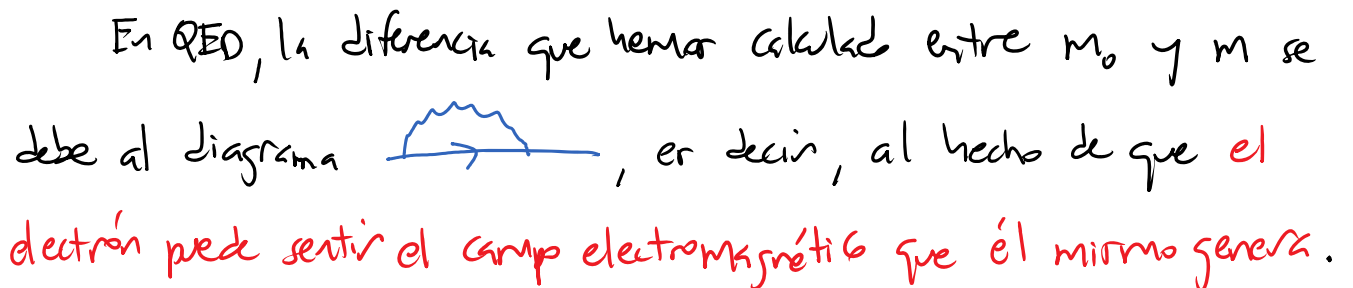 En QED, la diferencia que hemos calculado entre m₀ y m se
debe al diagrama , es decir, al hecho de que el
electrón puede sentir el campo electromagnético que él mismo genera.